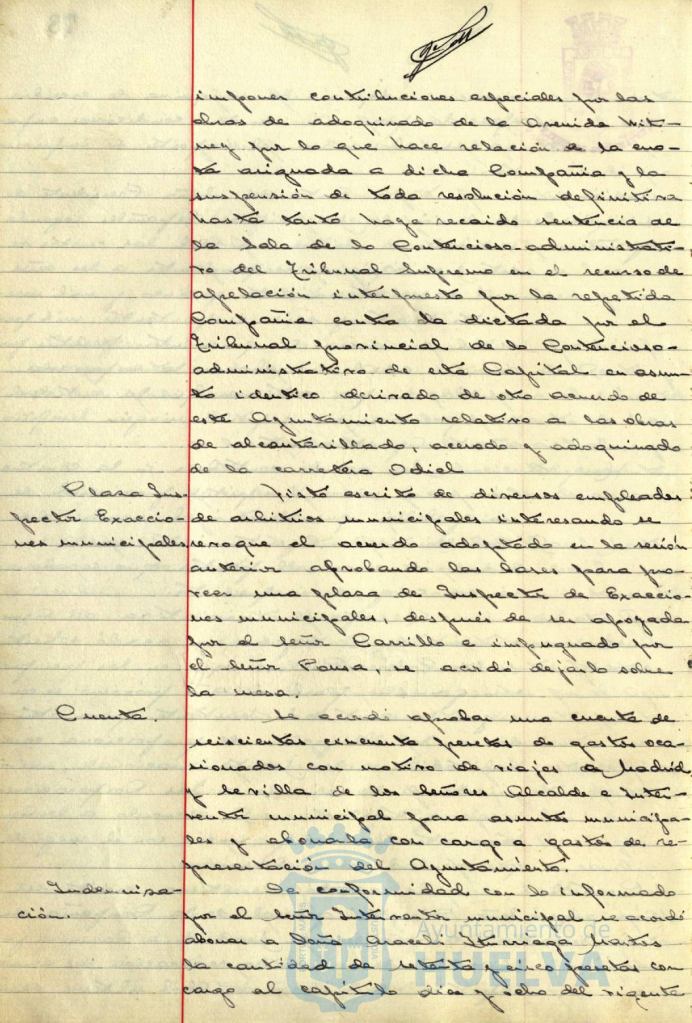 imponer contribuciones especiales por las
obras de adoquinado de la Avenida Wit-
ney por lo que hace relación a la cuo-
ta asignada a dicha Compañia y la
suspensión de toda resolución definitiva
hasta tanto haya recaido sentencia de
la Sala de lo Contencioso-administrati-
vo del Tribunal Supremo en el recurso de
apelación interpuesto por la repetida
Compañia contra la dictada por el
Tribunal provincial de lo Contencioso-
administrativo de esta Capital en asun-
to identico derivado de otro acuerdo de
este Ayuntamiento relativo a las obras
de alcantarillado, acerado y adoquinado
de la carretera Odiel
Plaza Ins-
pector Exaccio-
nes municipales
Visto escrito de diversos empleados
de arbitrios municipales interesando se
revoque el acuerdo adoptado en la sesión
anterior aprobando las bases para pro-
veer una plaza de Inspector de Exaccio-
nes municipales, después de ser apoyada
por el Señor Carrillo e impugnado por
el Señor Ponsa, se acordó dejarlo sobre
la mesa.
Cuenta.
Se acordó aprobar una cuenta de
seiscientas cincuenta pesetas de gastos oca-
sionados con motivo de viajes a Madrid
y Sevilla de los Señores Alcalde e Inter-
ventor municipal para asuntos municipa-
les y abonarla con cargo a gastos de re-
presentación del Ayuntamiento.
Indemniza-
ción.
De conformidad con lo informado
por el Señor Interventor municipal se acordó
abonar a Doña Araceli Iturriaga Martos
la cantidad de setenta y cinco pesetas con
cargo al capitulo diez y ocho del vigente
Ayuntamiento de
HUELVA